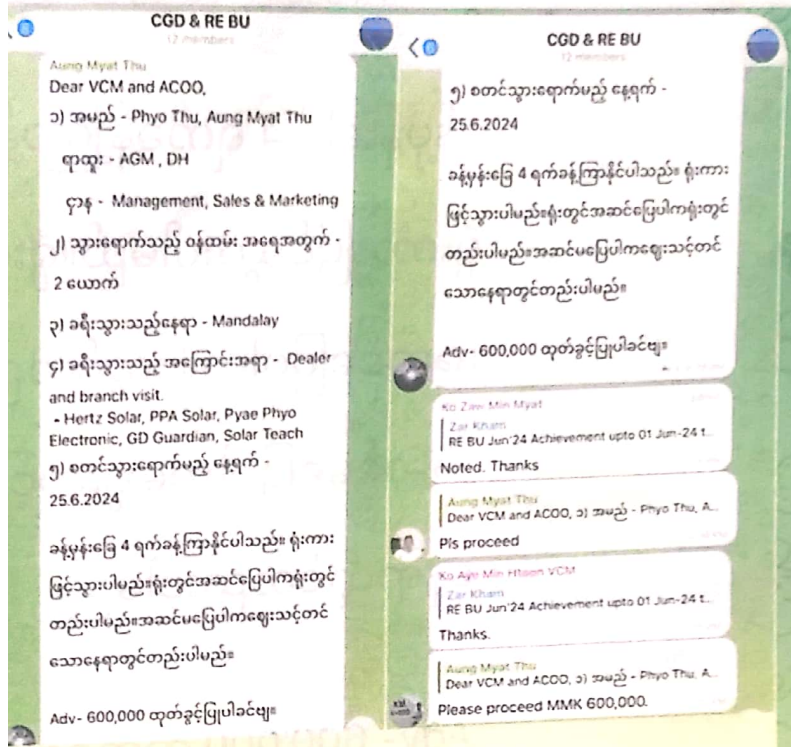 CGD & RE BU
12 members
Aung Myat Thu
Dear VCM and ACOO,
၁) အမည် - Phyo Thu, Aung Myat Thu
ရာထူး - AGM , DH
ဌာန - Management, Sales & Marketing
၂) သွားရောက်သည့် ဝန်ထမ်း အရေအတွက် -
2 ယောက်
၃) ခရီးသွားသည့်နေရာ - Mandalay
၄) ခရီးသွားသည့် အကြောင်းအရာ - Dealer
and branch visit.
- Hertz Solar, PPA Solar, Pyae Phyo
Electronic, GD Guardian, Solar Teach
၅) စတင်သွားရောက်မည့် နေ့ရက် -
25.6.2024
ခန့်မှန်းခြေ 4 ရက်ခန့်ကြာနိုင်ပါသည်။ ရုံးကား
ဖြင့်သွားပါမည်။ရုံးတွင်အဆင်ပြေပါကရုံးတွင်
တည်းပါမည်။အဆင်မပြေပါကဈေးသင့်တင်
သောနေရာတွင်တည်းပါမည်။
Adv- 600,000 ထုတ်ခွင့်ပြုပါခင်ဗျ။
CGD & RE BU
12 members
၅) စတင်သွားရောက်မည့် နေ့ရက် -
25.6.2024
ခန့်မှန်းခြေ 4 ရက်ခန့်ကြာနိုင်ပါသည်။ ရုံးကား
ဖြင့်သွားပါမည်။ရုံးတွင်အဆင်ပြေပါကရုံးတွင်
တည်းပါမည်။အဆင်မပြေပါကဈေးသင့်တင်
သောနေရာတွင်တည်းပါမည်။
Adv- 600,000 ထုတ်ခွင့်ပြုပါခင်ဗျ။
Ko Zaw Min Myat
Zar Kham
RE BU Jun'24 Achievement upto 01 Jun-24 t...
Noted. Thanks
Aung Myat Thu
Dear VCM and ACOO, ၁) အမည် - Phyo Thu, A...
Pls proceed
Ko Aye Min Htoon VCM
Zar Kham
RE BU Jun'24 Achievement upto 01 Jun-24 t...
Thanks.
Aung Myat Thu
Dear VCM and ACOO, ၁) အမည် - Phyo Thu, A...
Please proceed MMK 600,000.